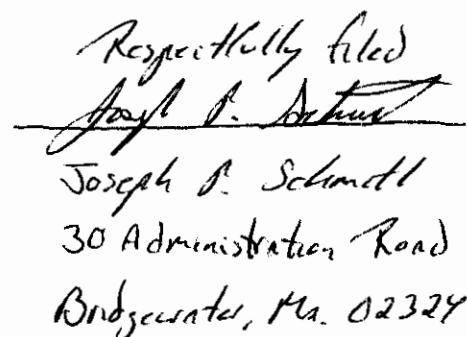 Respectfully filed
Joseph P.
Joseph P. Schmitt
30 Administration Road
Bridgewater, Ma. 02324